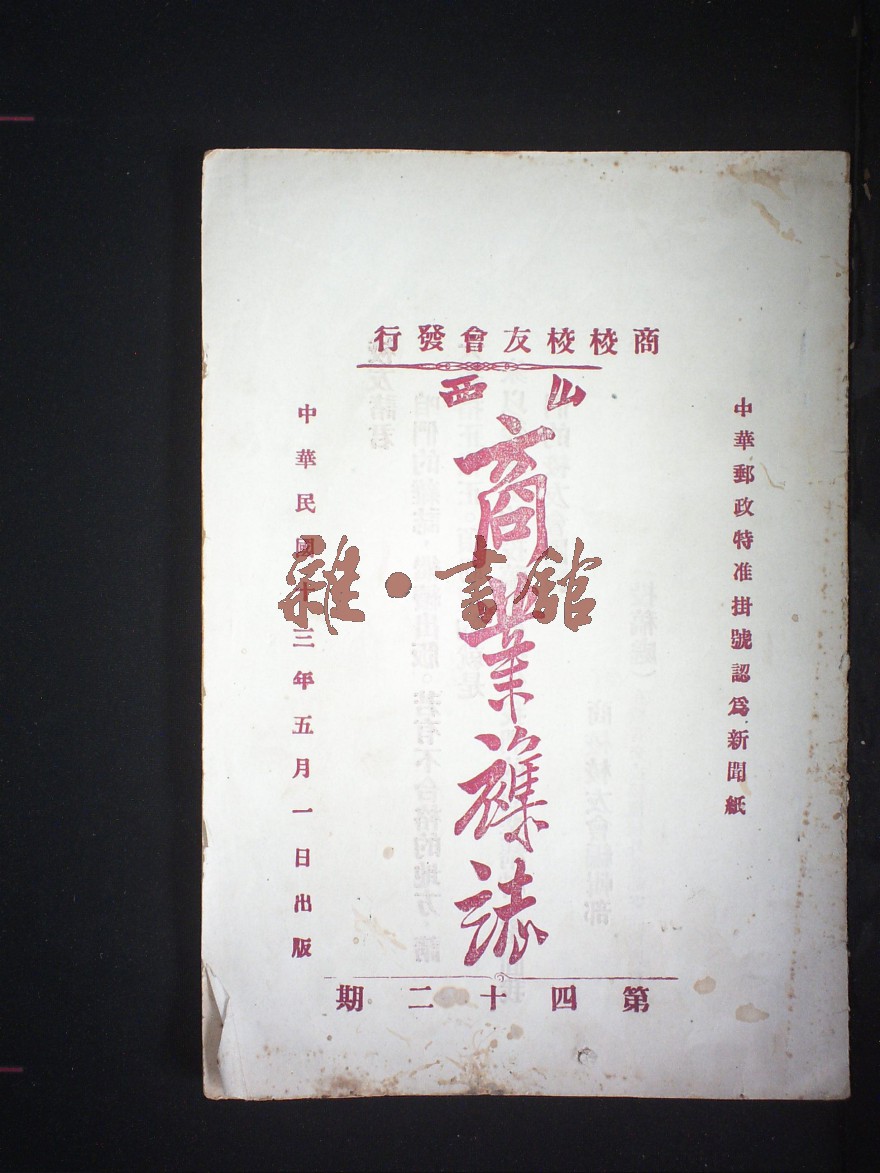 商校校友會發行
山西
商業襍誌
第四十二期
中華郵政特准掛號認爲新聞紙
中華民國十三年五月一日出版
雜·書館